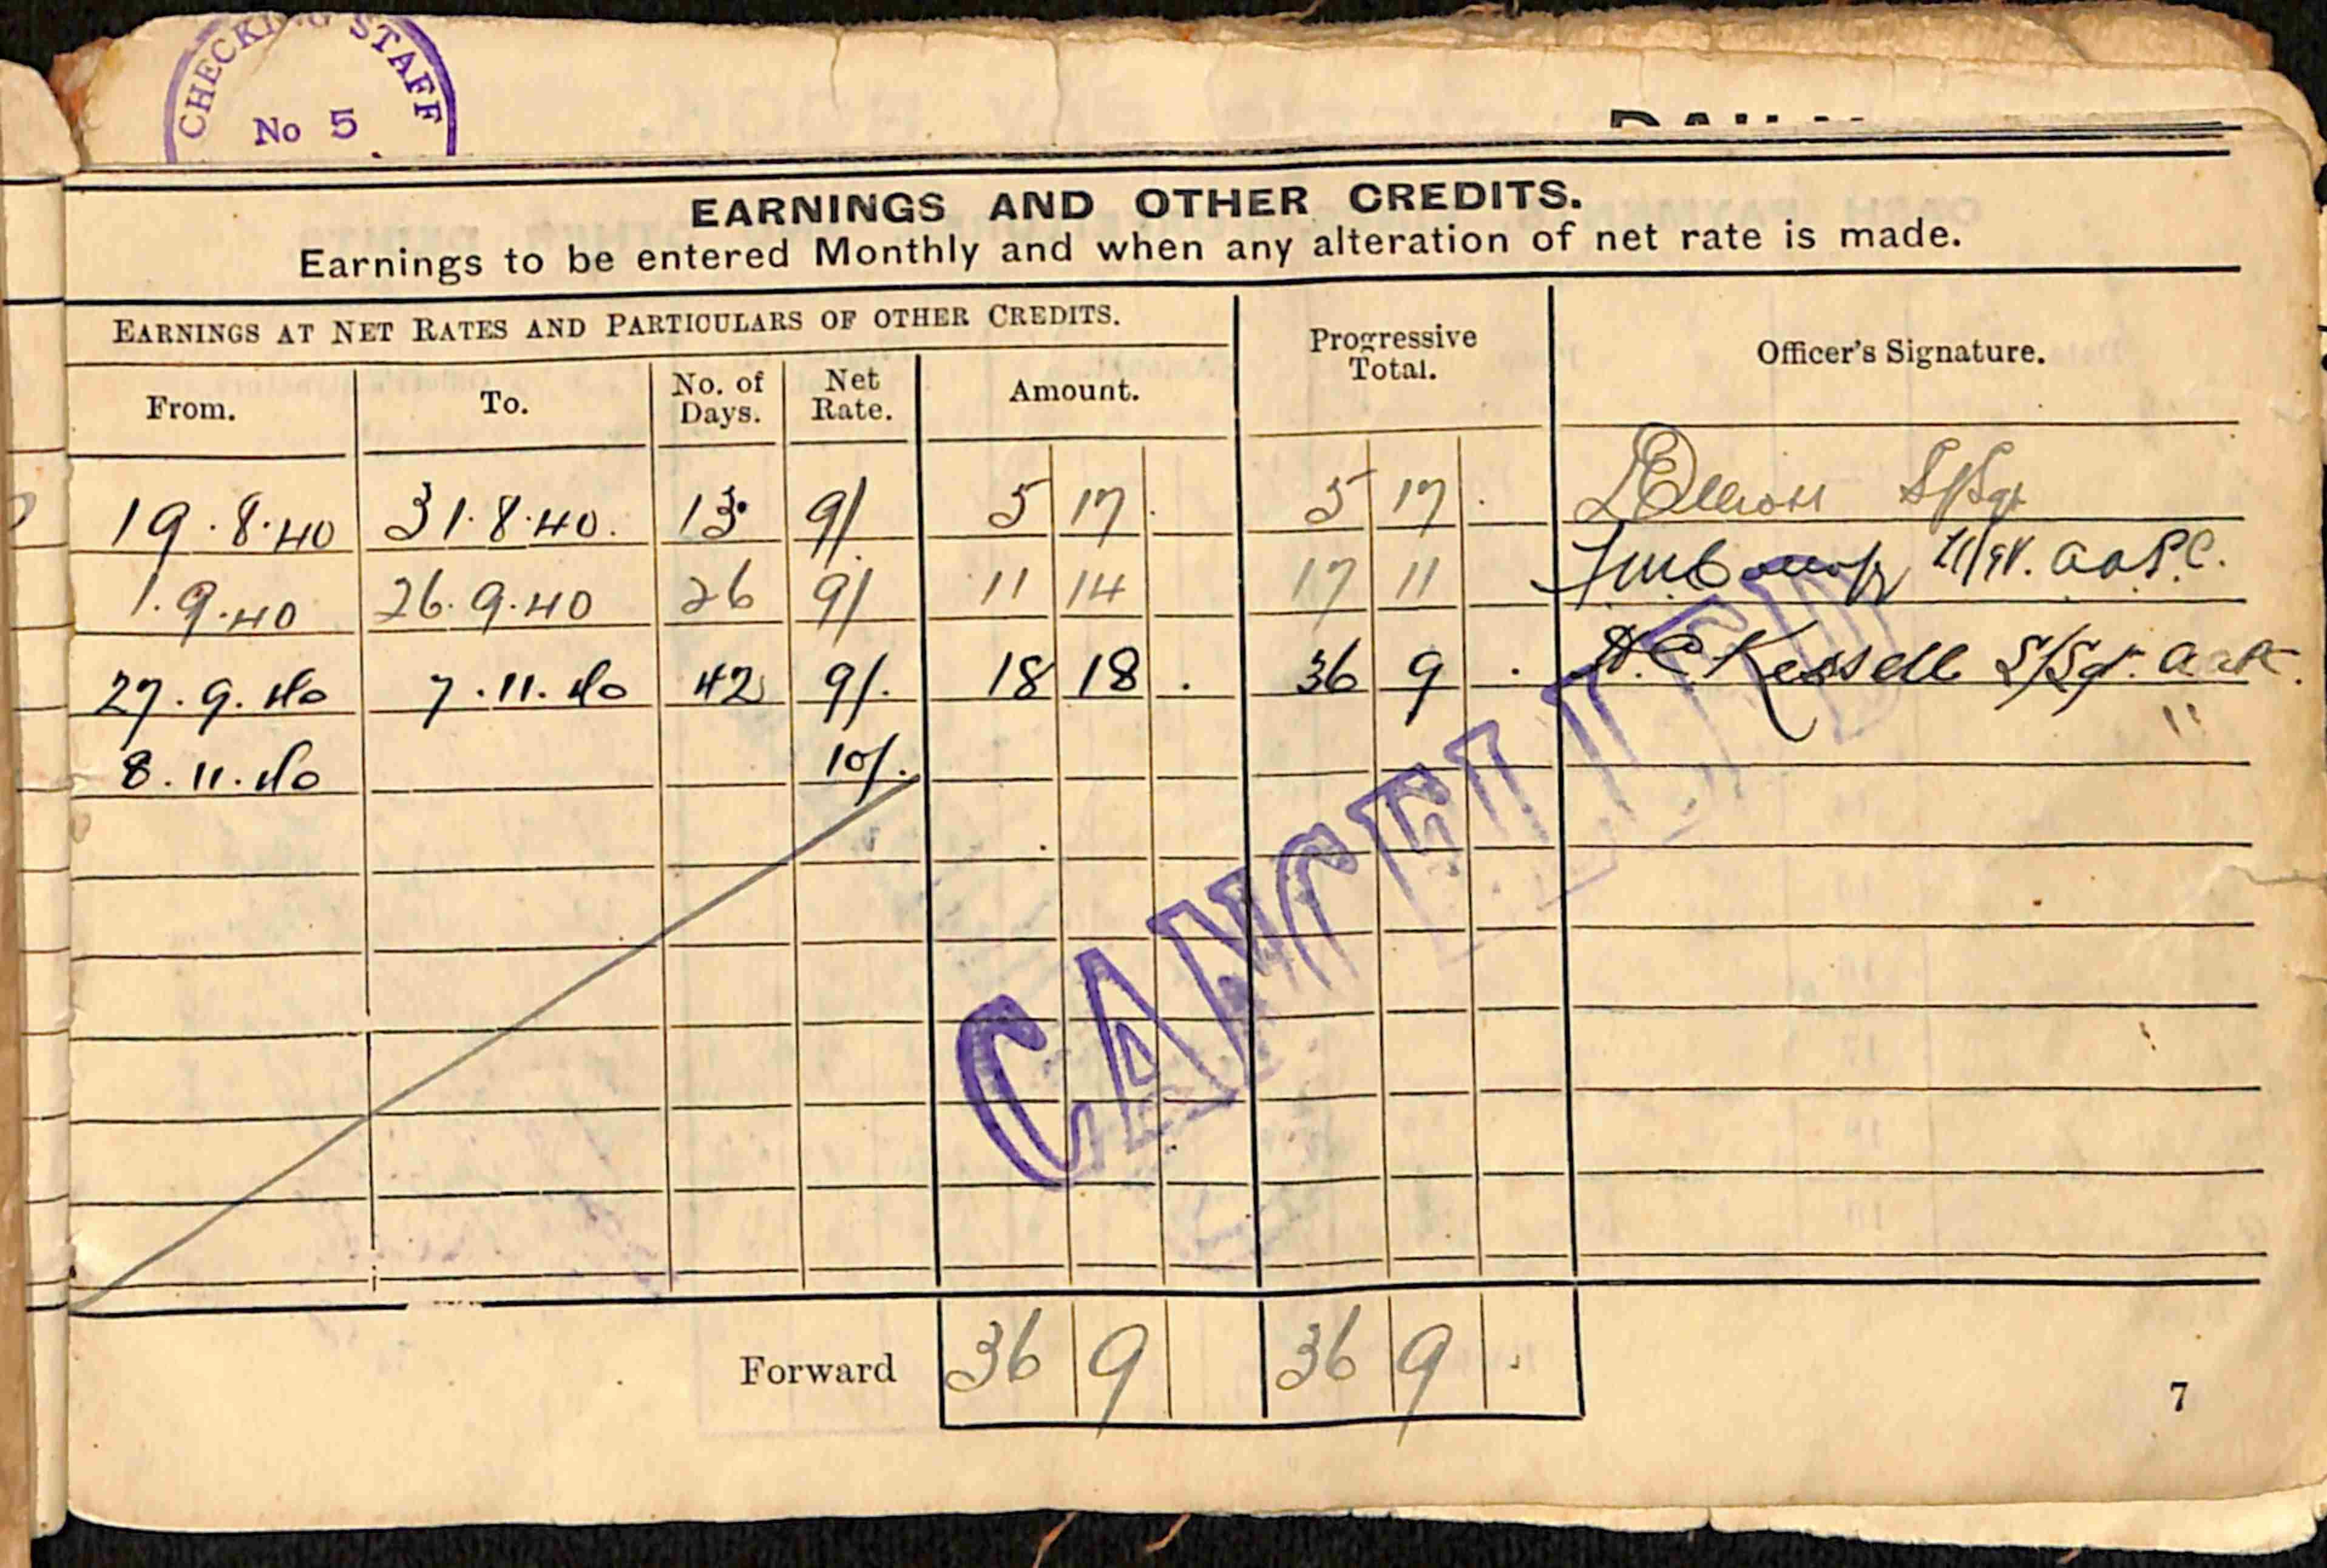 CHECKING STAFF
No 5
EARNINGS AND OTHER CREDITS.
Earnings to be entered Monthly and when any alteration of net rate is made.
EARNINGS AT NET RATES AND PARTICULARS OF OTHER CREDITS.
Progressive Total.
Officer's Signature.
From. To. No. of Days. Net Rate. Amount.
19.8.40 31.8.40. 13. 9/ 5 17 . 5 17 . S/Sgt
1.9.40 26.9.40 26 9/ 11 14 17 11
27.9.40 7.11.40 42 9/. 18 18 . 36 9 . Kessell S/Sgt.
8.11.40 10/. "
CANCELLED
Forward 36 9 36 9 .
7